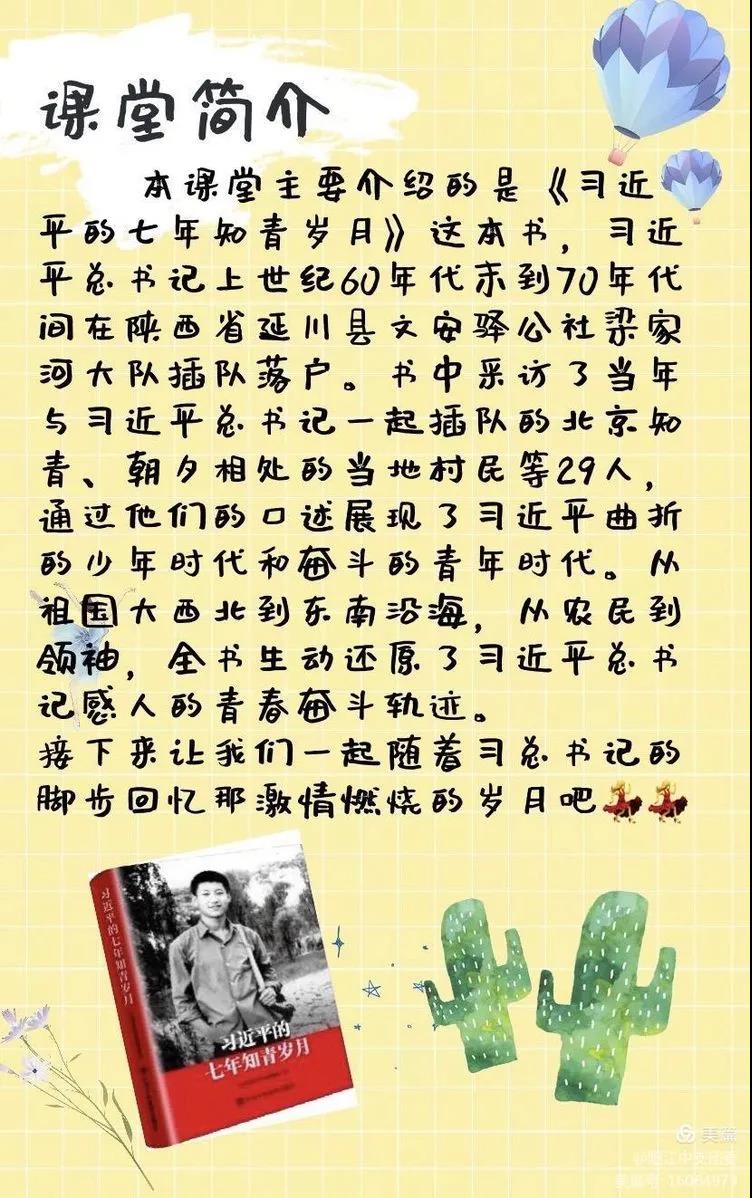 课堂简介
本课堂主要介绍的是《习近
平的七年知青岁月》这本书，习近
平总书记上世纪60年代末到70年代
间在陕西省延川县文安驿公社梁家
河大队插队落户。书中采访了当年
与习近平总书记一起插队的北京知
青、朝夕相处的当地村民等29人，
通过他们的口述展现了习近平曲折
的少年时代和奋斗的青年时代。从
祖国大西北到东南沿海，从农民到
领袖，全书生动还原了习近平总书
记感人的青春奋斗轨迹。
接下来让我们一起随着习总书记的
脚步回忆那激情燃烧的岁月吧
习近平的七年知青岁月
习近平的
七年知青岁月
美篇